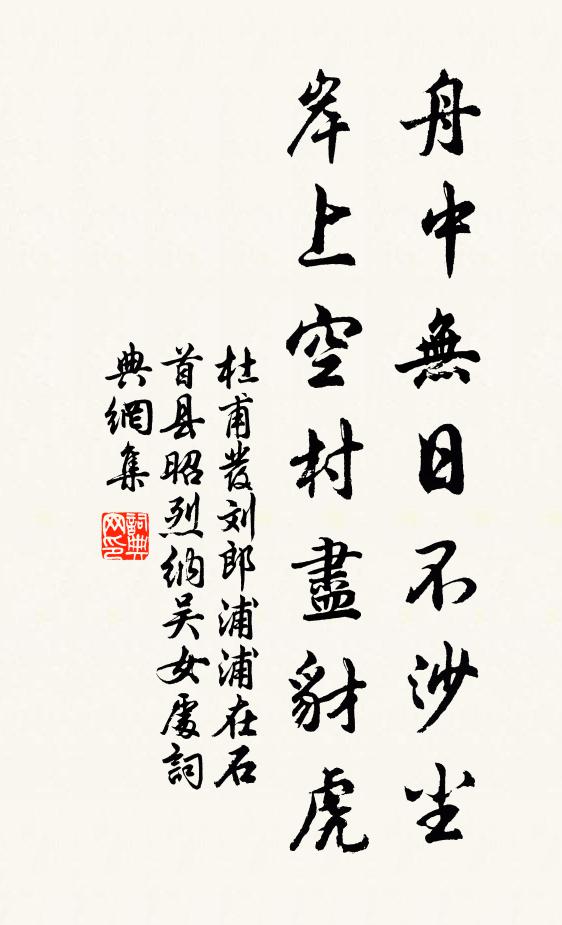 舟中無日不沙尘
岸上空村盡豺虎
杜甫發刘郎浦浦在石
首县昭烈纳吴女處詞
典網集
詞典网印